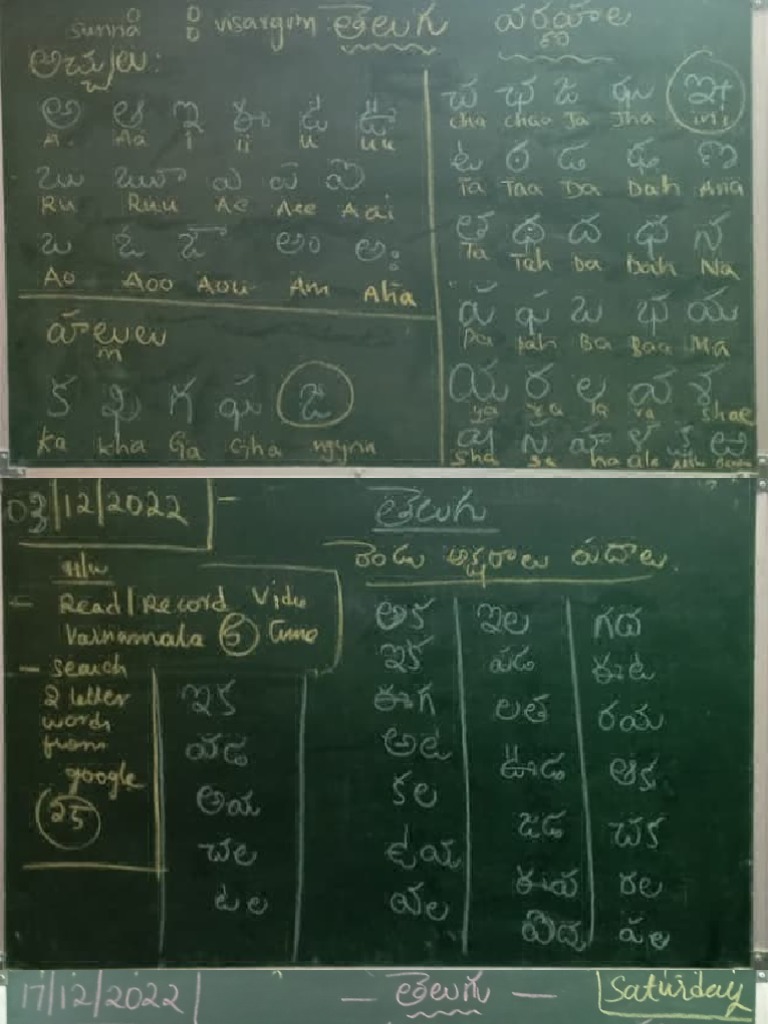 sunna ° ° visargam తెలుగు వర్ణమాల
అచ్చులు:
అ ఆ ఇ ఈ ఉ ఊ
A Aa i ii u uu
ఋ ౠ ఎ ఏ ఐ
Ru Ruu Ae Aee Aai
ఒ ఓ ఔ అం అః
Ao Aoo Aou Am Aha
హల్లులు
క ఖ గ ఘ ఙ
Ka kha Ga Gha ngyna
చ ఛ జ ఝ ఞ
cha chaa Ja Jha ini
ట ఠ డ ఢ ణ
Ta Taa Da Dah Ana
త థ ద ధ న
Ta Tah Da Dah Na
ప ఫ బ భ మ
Pa pah Ba Baa Ma
య ర ల వ శ
ya ra la va shae
ష స హ ళ క్ష ఱ
sha sa ha ala
02/12/2022 - తెలుగు
H/W
- Read/Record Video
Varnamala 6 time
- search
2 letter
words
from
google
25
ఇక
పడ
అమ
చల
టల
రెండు అక్షరాలు పదాలు.
ఆక ఇల గద
ఇక పడ ఈట
ఈగ లత రమ
అట ఊడ ఆకు
కల జడ చక
ఉమ ఈమ రల
వల వీధ పల
17/12/2022 - తెలుగు - Saturday